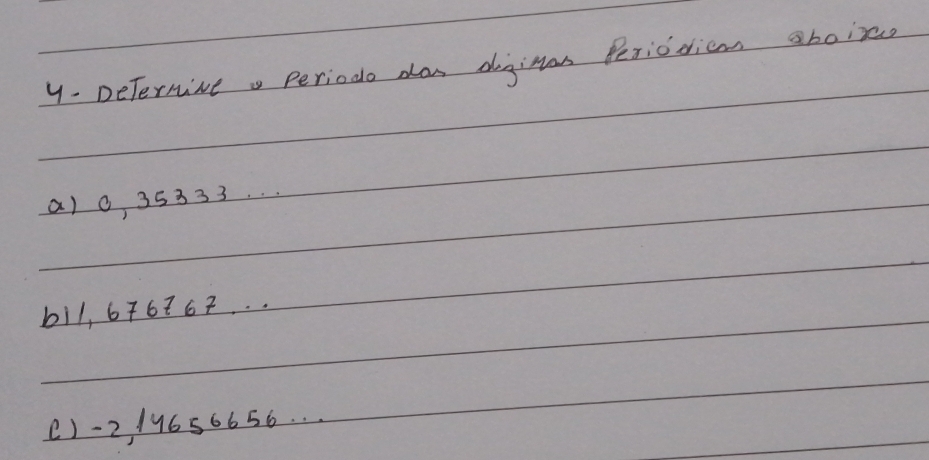 4- Determine o Periodo das dizimas Periódicas abaixo
a) 0,35333...
b) 1,676767...
c) -2,14656656...